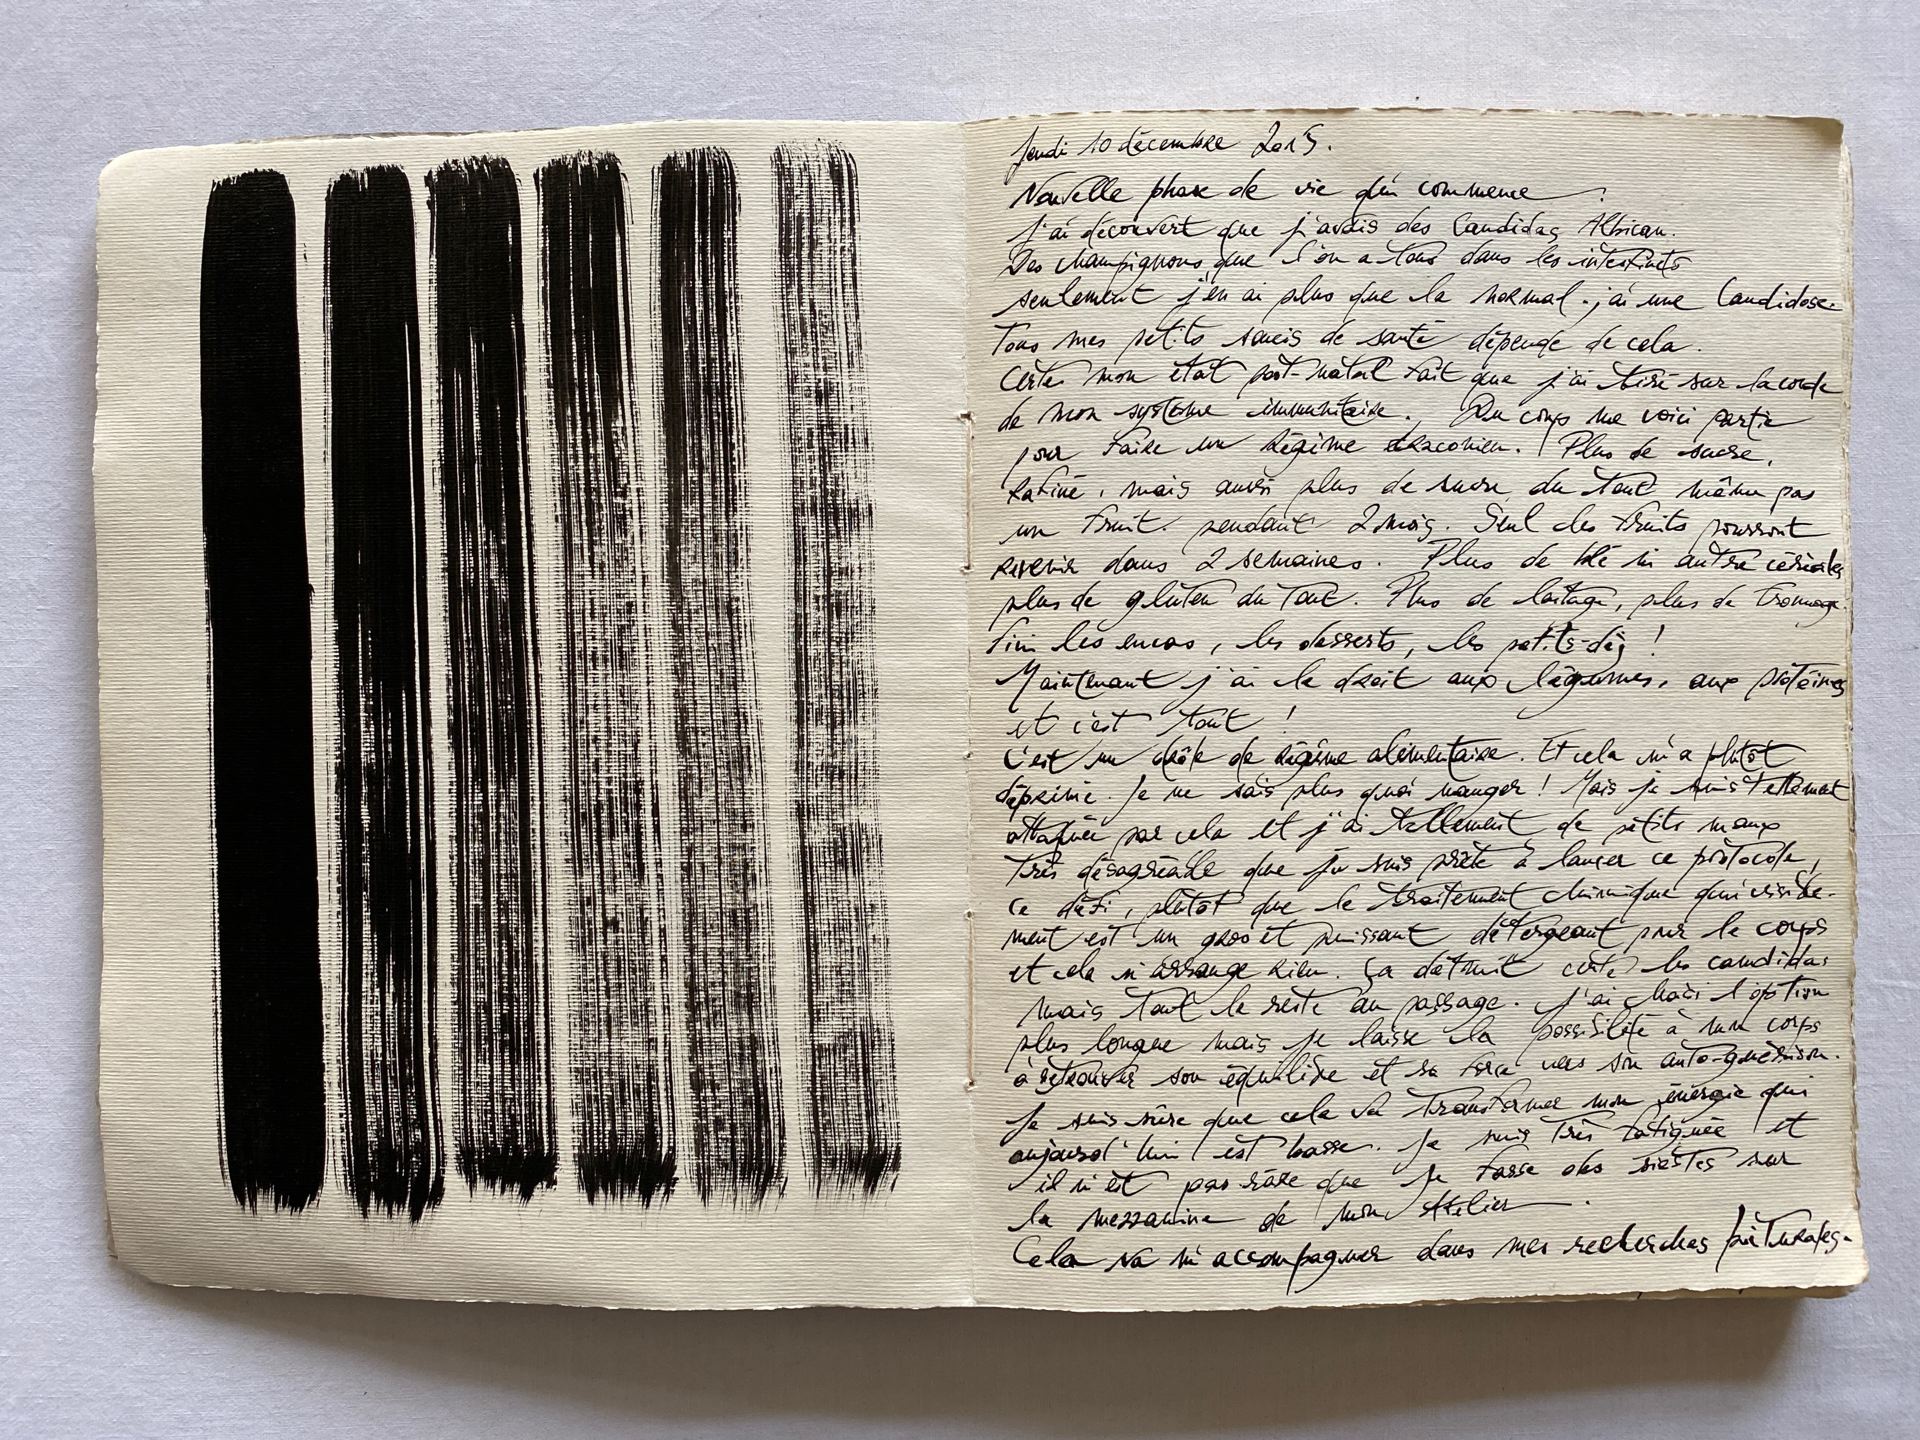 Jeudi 10 décembre 2015.
Nouvelle phase de vie qui commence.
J'ai découvert que j'avais des Candidas Albican.
Des champignons que l'on a tous dans les intestints
seulement j'en ai plus que la normal. j'ai une Candidose.
Tous mes petits soucis de santé dépende de cela.
Certes mon état post-natal fait que j'ai tiré sur la corde
de mon système immunitaire. Du coup me voici partie
pour faire un régime draconien. Plus de sucre,
rafiné, mais aussi plus de sucre du tout même pas
un fruit. pendant 2 mois. Seul les fruits pourront
revenir dans 2 semaines. Plus de blé ni autre céréales
plus de gluten du tout. Plus de laitage, plus de fromage.
Fini les encas, les desserts, les petits-déj !
Maintenant j'ai le droit aux légumes, aux protéines
et c'est tout !
C'est un drôle de régime alimentaire. Et cela m'a plutôt
déprimé. Je ne sais plus quoi manger ! Mais je suis tellement
attaquée par cela et j'ai tellement de petits maux
très désagréable que je suis prête à lancer ce protocole,
ce défi, plutôt que le traitement chimique qui visible-
ment est un gros et puissant détergeant pour le corps
et cela n'arrange rien. Ça détruit certes les candidas
mais tout le reste au passage. J'ai choisi l'option
plus longue mais je laisse la possibilité à mon corps
à retrouver son équilibre et sa force vers son auto-guérison.
Je suis sûre que cela va transformer mon énérgie qui
aujourd'hui est basse. Je suis très fatiguée et
il n'est pas rare que je fasse des siestes sur
la mezzanine de mon Atelier.
Cela va m'accompagner dans mes recherches picturales.